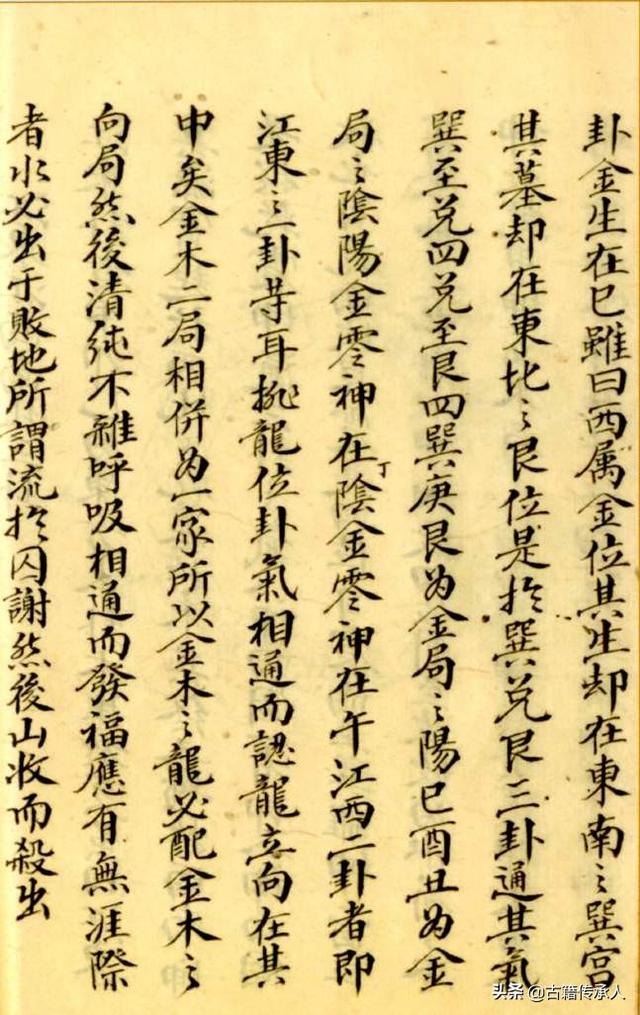 卦金生在巳雖曰西属金位其生却在東南之巽宫
其墓却在東北之艮位是扵巽兑艮三卦通其氣
巽至兑四兑至艮四巽庚艮为金局之陽巳酉丑为金
局之陰陽金零神在丁陰金零神在午江西二卦者即
江東之一卦䓁耳挑龍位卦氣相通而認龍立向在其
中矣金木二局相併为一家所以金木之龍必配金木之
向局然後清纯不雜呼吸相通而發福應有無涯際
者水必出于敗地所謂流扵囚謝然後山收而殺出
头条 @古籍传承人